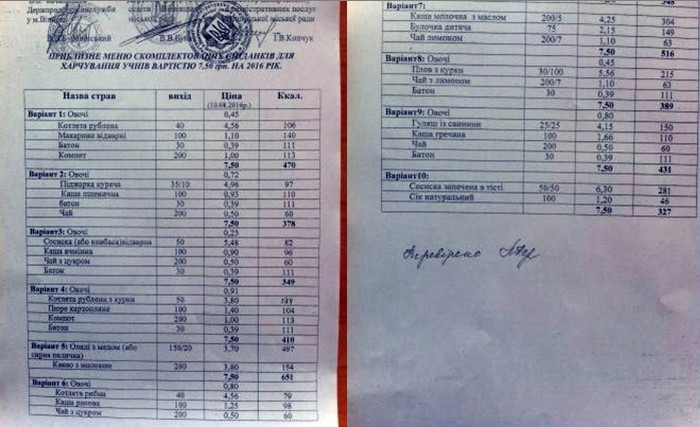 Держпродспоживслужби
у м.Вінниці
міської ради
адміністративних послуг
міської ради
В.В.
І.В.Копчук
ПРИБЛИЗНЕ МЕНЮ СКОМПЛЕКТОВАНИХ СНІДАНКІВ ДЛЯ
ХАРЧУВАННЯ УЧНІВ ВАРТІСТЮ 7,50 грн. НА 2016 РІК.
Назва страв вихід Ціна Ккал.
(10.08.2016р.)
Варіант 1: Овочі 0,45
Котлета рублена 40 4,56 106
Макарони відварні 100 1,10 140
Батон 30 0,39 111
Компот 200 1,00 113
7,50 470
Варіант 2: Овочі 0,72
Піджарка куряча 35/10 4,96 97
Каша пшенична 100 0,93 110
батон 30 0,39 111
Чай 200 0,50 60
7,50 378
Варіант3: Овочі 0,23
Сосиска (або ковбаса)відварна 50 5,48 82
Каша ячмінна 100 0,90 96
Чай з цукром 200 0,50 60
Батон 30 0,39 111
7,50 349
Варіант 4: Овочі 0,91
Котлета рублена з курки 50 3,80
Пюре картопляне 100 1,40 104
Компот 200 1,00 113
Батон 30 0,39 111
7,50 410
Варіант 5: Оладі з медом (або 150/20 3,70 497
сирна паличка)
Какао з молоком 200 3,80 154
7,50 651
Варіант 6: Овочі 0,80
Котлета рибна 40 4,56 79
Каша рисова 100 1,25 98
Чай з цукром 200 0,50 60
348
Варіант7:
Каша молочна з маслом 200/5 4,25 304
Булочка дитяча 75 2,15 149
Чай лимоном 200/7 1,10 63
7,50 516
Варіант8: Овочі 0,45
Плов з курки 30/100 5,56 215
Чай з лимоном 200/7 1,10 63
Батон 30 0,39 111
7,50 389
Варіант9: Овочі 0,80
Гуляш із свинини 25/25 4,15 150
Каша гречана 100 1,66 110
Чай 200 0,50 60
Батон 30 0,39 111
7,50 431
Варіант10:
Сосиска запечена в тісті 50/50 6,30 281
Сік натуральний 100 1,20 46
7,50 327
Перевірено